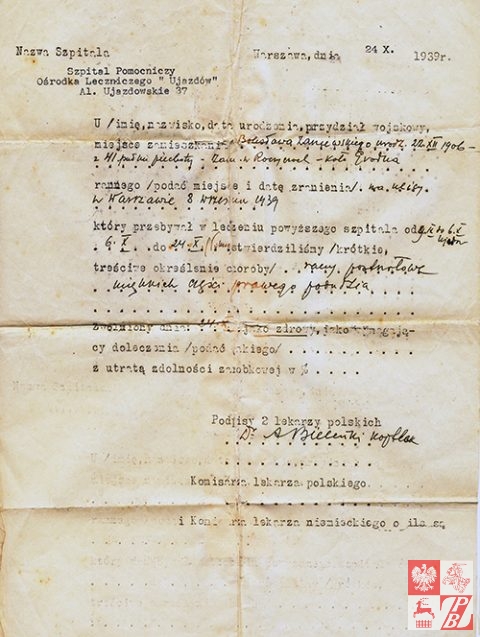 Nazwa Szpitala
Warszawa, dnia 24 X. 1939r.
Szpital Pomocniczy
Ośrodka Leczniczego " Ujazdów"
Al. Ujazdowskie 37
U /imię, nazwisko, data urodzenia, przydział wojskowy,
miejsce zamieszkania/ urodz. 22 XII 1906
z 41 pułku piechoty - zam. w - koło Grodna
rannego /podać miejsce i datę zranienia/. na ulicy
w Warszawie 8 wrzesień 1939
który przebywał w leczeniu powyższego szpitala od
6. X . . do 24. X stwierdziliśmy /krótkie,
treściwe określenie choroby/ . . rany postrzałowe
miękkich części prawego pośladka
zwolniony dnia: jako zdrowy, jako wymagają-
cy doleczenia /podać jakiego/
z utratą zdolności zarobkowej w %
Podpisy 2 lekarzy polskich
Dr. A Bieleński
Komisarza lekarza polskiego.
i Komisarza lekarza niemieckiego o ile są
ZPB